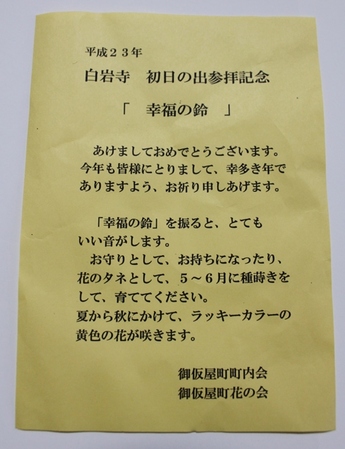 平成２３年
白岩寺　初日の出参拝記念
「　幸福の鈴　」
あけましておめでとうございます。
今年も皆様にとりまして、幸多き年で
ありますよう、お祈り申しあげます。
「幸福の鈴」を振ると、とても
いい音がします。
お守りとして、お持ちになったり、
花のタネとして、５～６月に種蒔きを
して、育ててください。
夏から秋にかけて、ラッキーカラーの
黄色の花が咲きます。
御仮屋町町内会
御仮屋町花の会